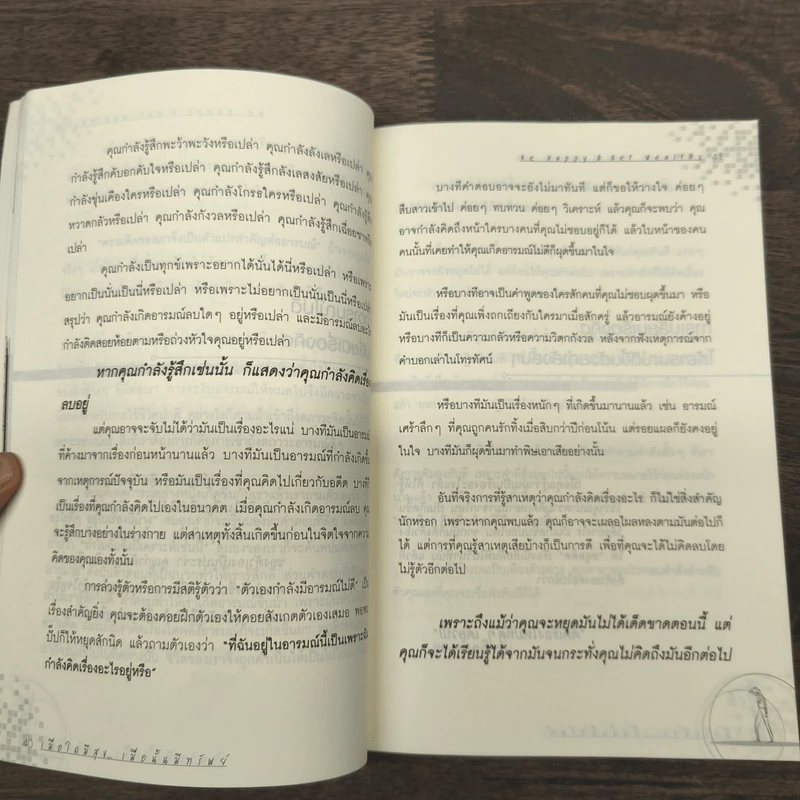 คุณกำลังรู้สึกพะว้าพะวังหรือเปล่า คุณกำลังลังเลหรือเปล่า
กำลังรู้สึกคับอกคับใจหรือเปล่า คุณกำลังรู้สึกลังเลสงสัยหรือเปล่า
กำลังขุ่นเคืองใครหรือเปล่า คุณกำลังโกรธใครหรือเปล่า
หวาดกลัวหรือเปล่า คุณกำลังกังวลหรือเปล่า คุณกำลังรู้สึกเฉื่อยชาหรือ
เปล่า
คุณกำลังเป็นทุกข์เพราะอยากได้นั่นได้นี่หรือเปล่า หรือเพราะ
อยากเป็นนั่นเป็นนี่หรือเปล่า หรือเพราะไม่อยากเป็นนั่นเป็นนี่หรือเปล่า
สรุปว่า คุณกำลังเกิดอารมณ์ลบใดๆ อยู่หรือเปล่า และมีอารมณ์ลบ
กำลังคิดสอยห้อยตามหรือถ่วงหัวใจคุณอยู่หรือเปล่า
หากคุณกำลังรู้สึกเช่นนั้น ก็แสดงว่าคุณกำลังคิดเรื่อง
ลบอยู่
แต่คุณอาจจะจับไม่ได้ว่ามันเป็นเรื่องอะไรแน่ บางทีมันเป็นอารมณ์
ที่ค้างมาจากเรื่องก่อนหน้านานแล้ว บางทีมันเป็นอารมณ์ที่กำลังเกิดขึ้น
จากเหตุการณ์ปัจจุบัน หรือมันเป็นเรื่องที่คุณคิดไปเกี่ยวกับอดีต บางที
เป็นเรื่องที่คุณกำลังคิดไปเองในอนาคต เมื่อคุณกำลังเกิดอารมณ์ลบ
จะรู้สึกบางอย่างในร่างกาย แต่สาเหตุทั้งสิ้นเกิดขึ้นก่อนในจิตใจจากความ
คิดของคุณเองทั้งนั้น
การล่วงรู้ตัวหรือการมีสติรู้ตัวว่า "ตัวเองกำลังมีอารมณ์ไม่ดี"
เรื่องสำคัญยิ่ง คุณจะต้องคอยฝึกตัวเองให้คอยสังเกตตัวเองเสมอ
ปั๊บก็ให้หยุดสักนิด แล้วถามตัวเองว่า "ที่ฉันอยู่ในอารมณ์นี้เป็นเพราะฉัน
กำลังคิดเรื่องอะไรอยู่หรือ"
40 เมื่อใดมีสุข... เมื่อนั้นมีทรัพย์
Be Happy & Get Wealthy 41
บางทีคำตอบอาจจะยังไม่มาทันที แต่ก็ขอให้วางใจ ค่อยๆ
สืบสาวเข้าไป ค่อยๆ ทบทวน ค่อยๆ วิเคราะห์ แล้วคุณก็จะพบว่า คุณ
อาจกำลังคิดถึงหน้าใครบางคนที่คุณไม่ชอบอยู่ก็ได้ แล้วใบหน้าของคน
คนนั้นที่เคยทำให้คุณเกิดอารมณ์ไม่ดีก็ผุดขึ้นมาในใจ
หรือบางทีอาจเป็นคำพูดของใครสักคนที่คุณไม่ชอบผุดขึ้นมา หรือ
มันเป็นเรื่องที่คุณเพิ่งถกเถียงกับใครมาเมื่อสักครู่ แล้วอารมณ์ยังค้างอยู่
หรือบางทีก็เป็นความกลัวหรือความวิตกกังวล หลังจากฟังเหตุการณ์จาก
คำบอกเล่าในโทรทัศน์
หรือบางทีมันเป็นเรื่องหนักๆ ที่เกิดขึ้นมานานแล้ว เช่น อารมณ์
เศร้าลึกๆ ที่คุณถูกคนรักทิ้งเมื่อสิบกว่าปีก่อนโน้น แต่รอยแผลก็ยังคงอยู่
ในใจ บางทีมันก็ผุดขึ้นมาทำพิษเอาเสียอย่างนั้น
อันที่จริงการที่รู้สาเหตุว่าคุณกำลังคิดเรื่องอะไร ก็ไม่ใช่สิ่งสำคัญ
นักหรอก เพราะหากคุณพบแล้ว คุณก็อาจจะเผลอไผลหลงตามมันต่อไปก็
ได้ แต่การที่คุณรู้สาเหตุเสียบ้างก็เป็นการดี เพื่อที่คุณจะได้ไม่คิดลบโดย
ไม่รู้ตัวอีกต่อไป
เพราะถึงแม้ว่าคุณจะหยุดมันไม่ได้เด็ดขาดตอนนี้ แต่
คุณก็จะได้เรียนรู้ได้จากมันจนกระทั่งคุณไม่คิดถึงมันอีกต่อไป